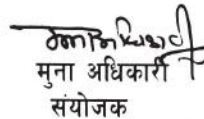 मुना अधिकारी
संयोजक